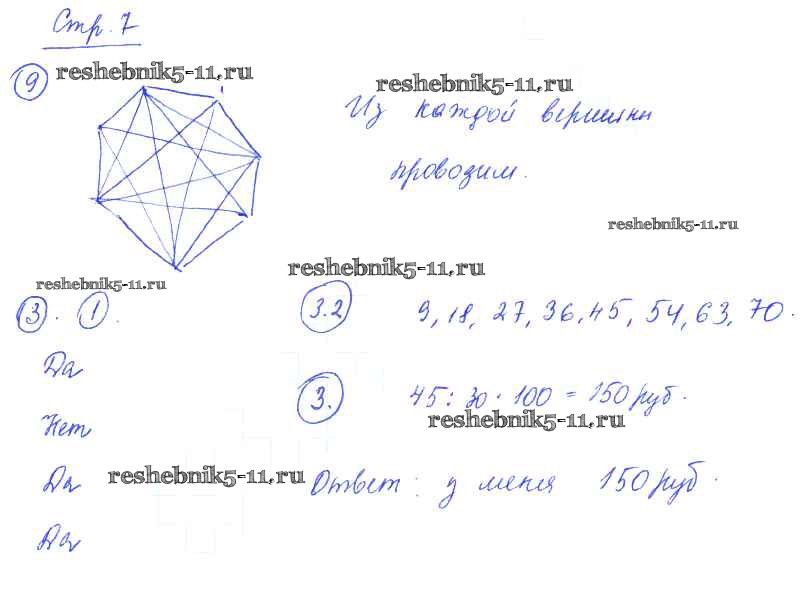 Стр. 7
9 reshebnik5-11.ru
reshebnik5-11.ru
Из каждой вершины
проводим.
reshebnik5-11.ru
reshebnik5-11.ru
reshebnik5-11.ru
3. 1.
Да
Нет
Да
Да
3.2 9, 18, 27, 36, 45, 54, 63, 70.
3. 45 : 30 · 100 = 150 руб.
reshebnik5-11.ru
reshebnik5-11.ru
Ответ: у меня 150 руб.